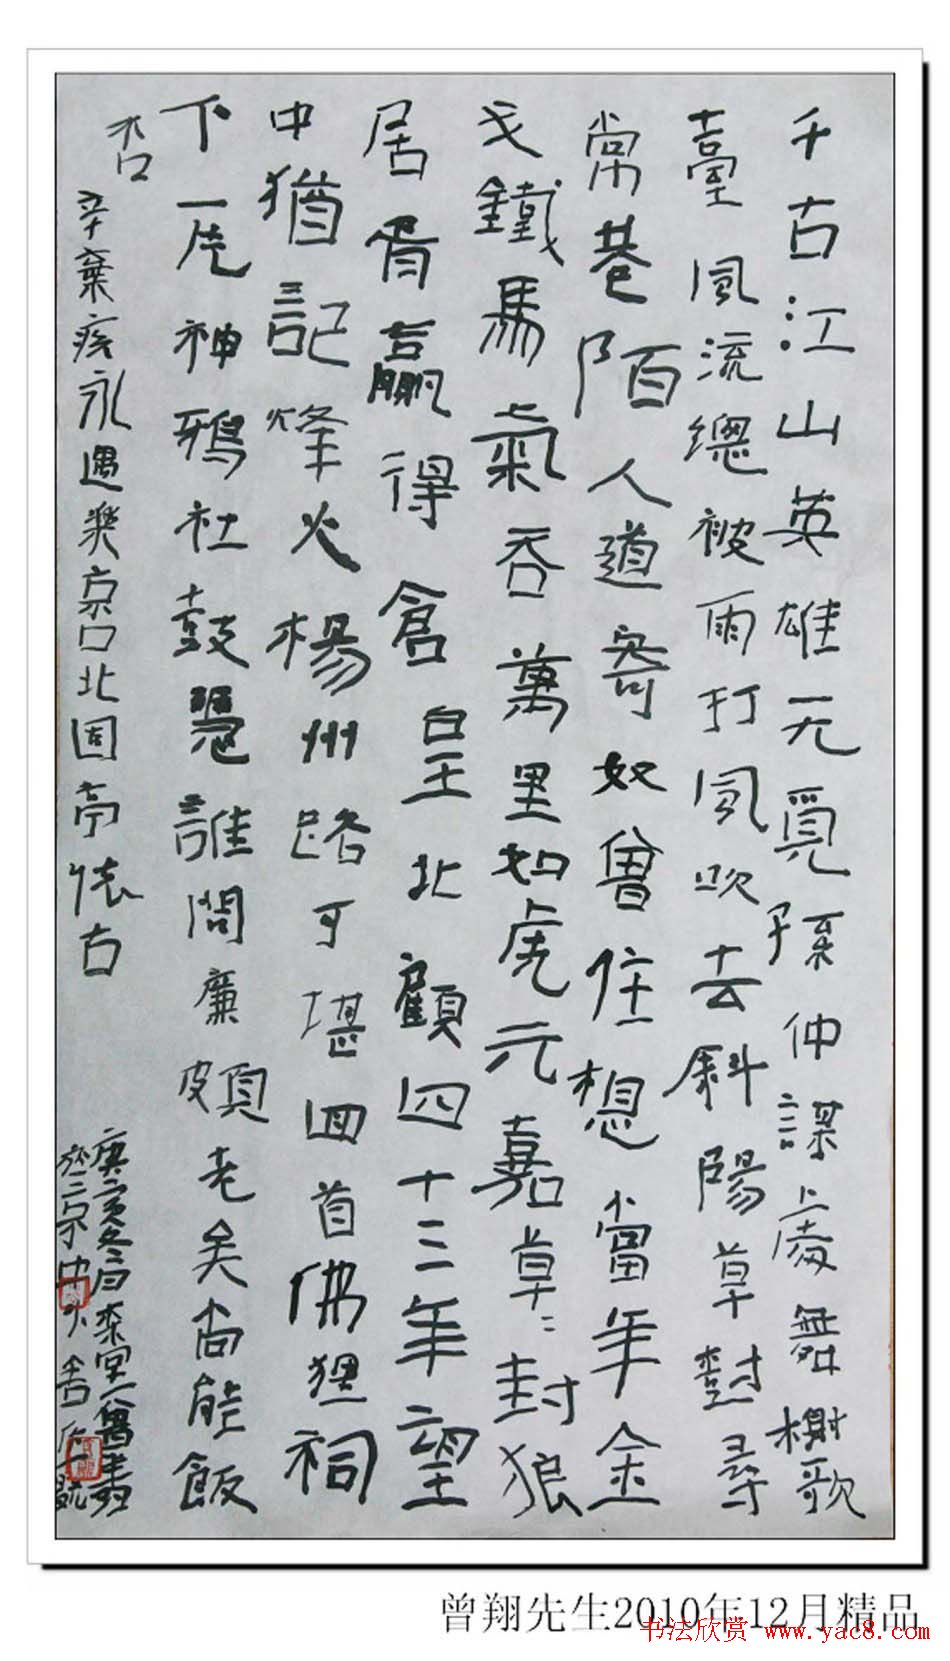 千古江山英雄无覓孫仲謀處舞榭歌
臺風流總被雨打風吹去斜陽草對尋
常巷陌人道寄奴曾住想當年金
戈鐵馬氣吞萬里如虎元嘉草二封狼
居胥贏得倉皇北顧四十三年望
中猶記烽火楊州路可堪回首佛狸祠
下一片神鴉社鼓憑誰問廉頗老矣尚能飯
否
辛棄疾永遇樂京口北固亭懷古
庚寅冬月
於京中
曾翔先生2010年12月精品
书法欣赏 www.yac8.com